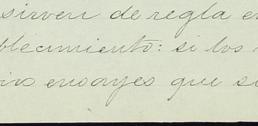 sirven de regla en
blecimiento: si los
ensayes que se